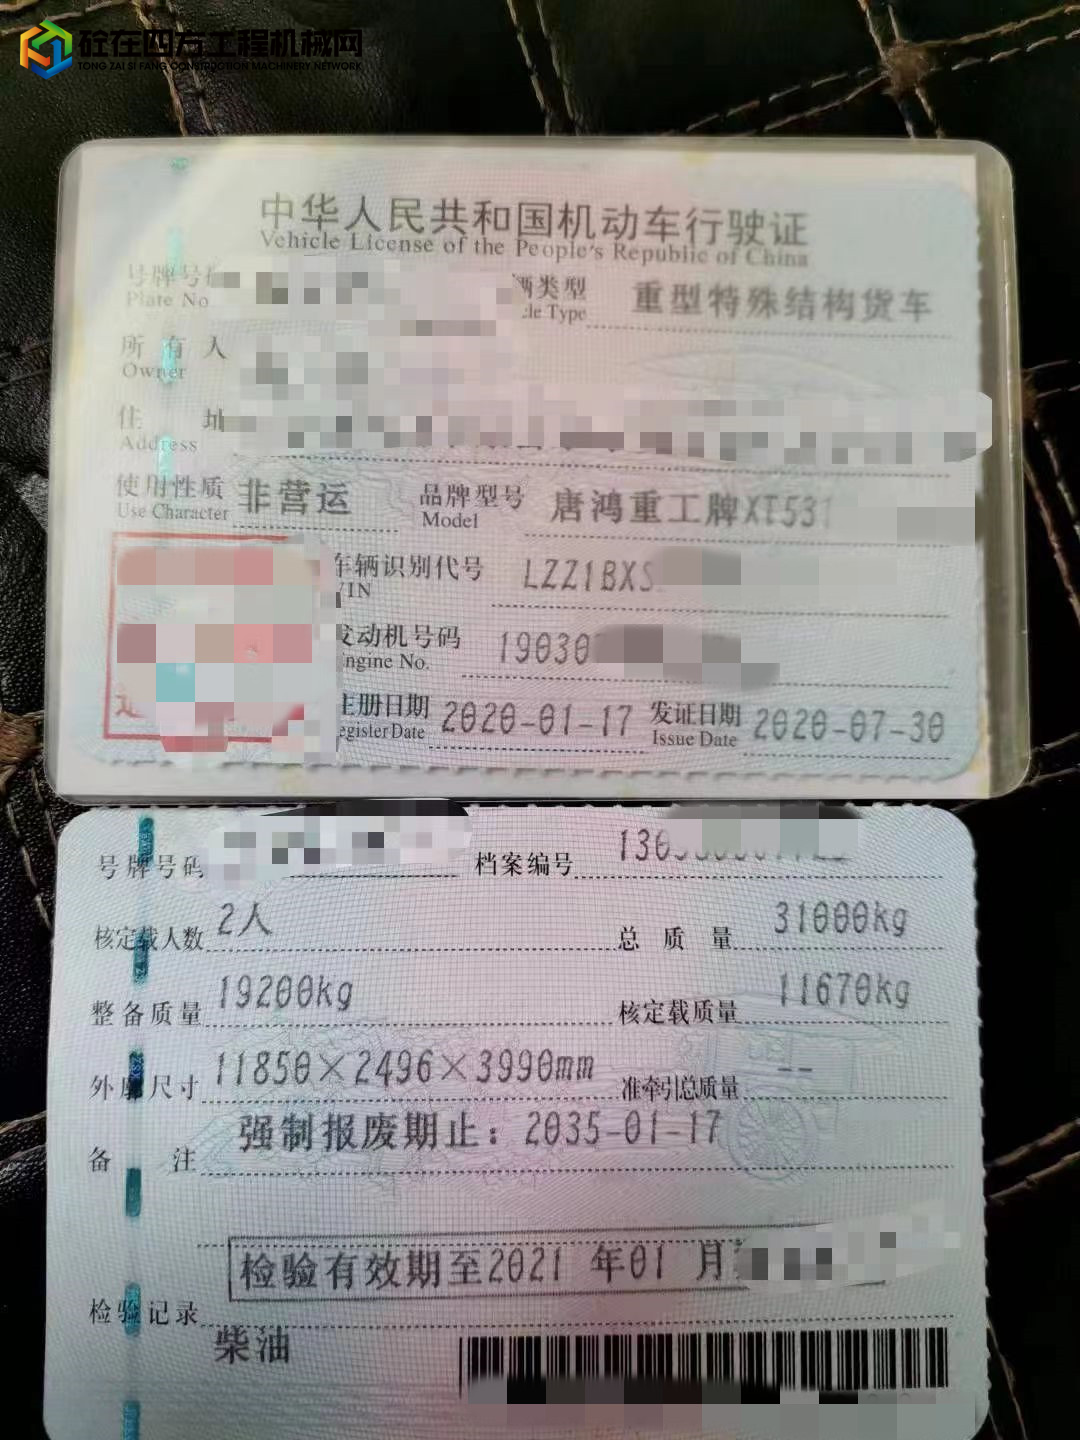 砼在四方工程机械网
TONG ZAI SI FANG CONSTRUCTION MACHINERY NETWORK
中华人民共和国机动车行驶证
Vehicle License of the People's Republic of China
号牌号 辆类型 重型特殊结构货车
Plate No. le Type
所有人
Owner
住址
Address
使用性质 非营运 品牌型号 唐鸿重工牌XT531
Use Character Model
车辆识别代号 LZZ1BXS
VIN
发动机号码 190307
Engine No.
注册日期 2020-01-17 发证日期 2020-07-30
Register Date Issue Date
号牌号码 档案编号 130
核定载人数 2人 总质量 31000kg
整备质量 19200kg 核定载质量 11670kg
外廓尺寸 11850×2496×3990mm 准牵引总质量 --
备注 强制报废期止：2035-01-17
检验有效期至2021年01月
检验记录
柴油